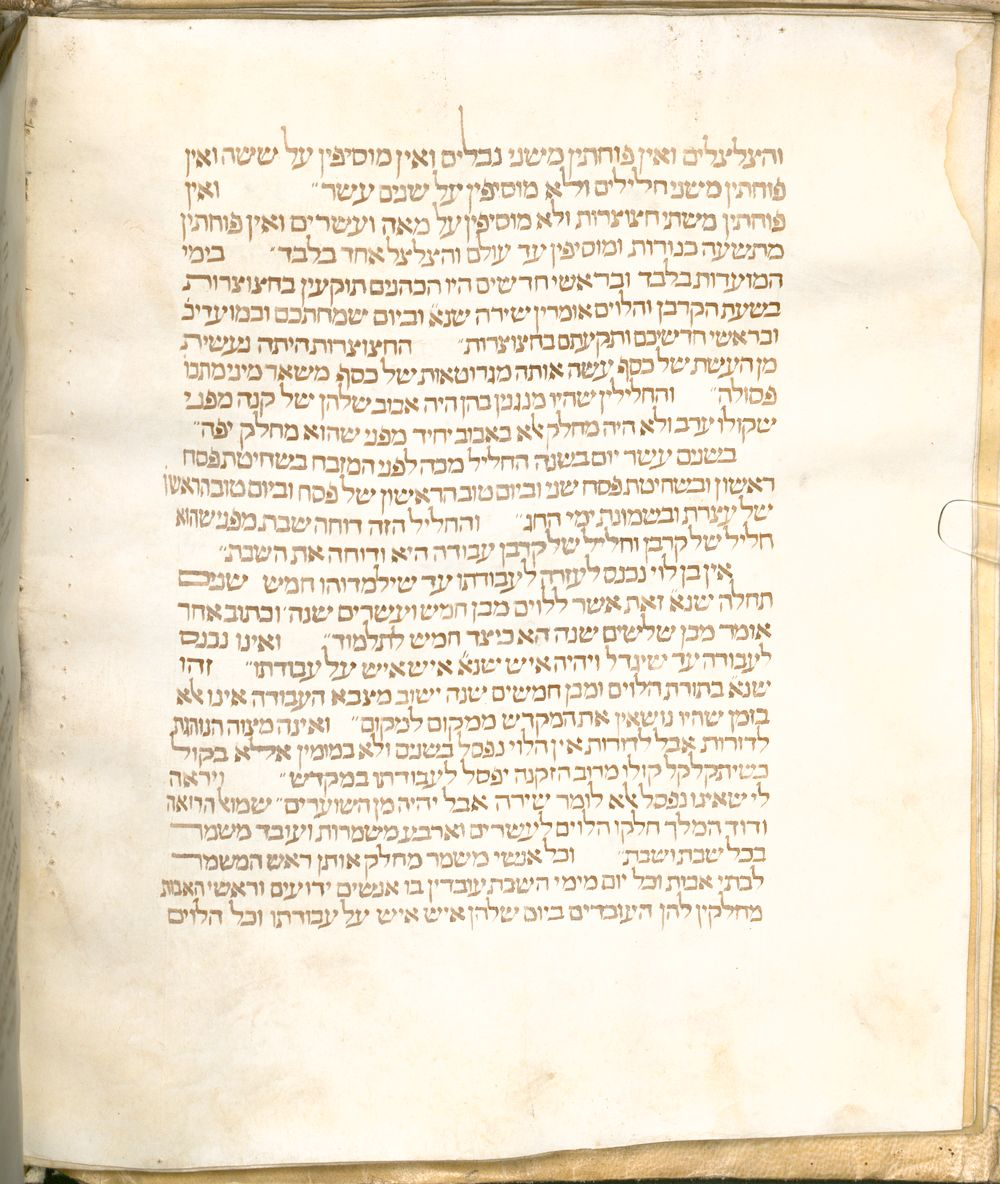 והצלצלים ואין פוחתין משני נבלים ואין מוסיפין על ששה ואין
פוחתין משני חלילים ולא מוסיפין על שנים עשר״ ואין
פוחתין משתי חצוצרות ולא מוסיפין על מאה ועשרים ואין פוחתין
מתשעה כנורות ומוסיפין עד עולם והצלצל אחד בלבד״ בימי
המועדות בלבד ובראשי חדשים היו הכהנים תוקעין בחצוצרות
בשעת הקרבן והלוים אומרין שירה שנא׳ וביום שמחתכם ובמועדיכ׳
ובראשי חדשיכם ותקעתם בחצוצרות״ החצוצרות היתה נעשית
מן העשת של כסף עשה אותה מגרוטאות של כסף משאר מיני מתכו׳
פסולה״ והחלילין שהיו מנגנין בהן היה אבוב שלהן של קנה מפני
שקולו ערב ולא היה מחלק אלא באבוב יחיד מפני שהוא מחלק יפה״
בשנים עשר יום בשנה החליל מכה לפני המזבח בשחיטת פסח
ראשון ובשחיטת פסח שני וביום טוב הראשון של פסח וביום טוב הראשון
של עצרת ובשמונת ימי החג״ והחליל הזה דוחה שבת מפני שהוא
חליל של קרבן וחליל של קרבן עבודה היא ודוחה את השבת״
אין בן לוי נכנס לעזרה לעבודתו עד שילמדוהו חמש שנים
תחלה שנא׳ זאת אשר ללוים מבן חמש ועשרים שנה׳ וכתוב אחר
אומר מבן שלשים שנה הא כיצד חמש לתלמוד״ ואינו נכנס
לעבודה עד שיגדל ויהיה איש שנא׳ איש איש על עבודתו״ זהו
שנא׳ בתורת הלוים ומבן חמשים שנה ישוב מצבא העבודה אינו אלא
בזמן שהיו נושאין את המקדש ממקום למקום״ ואינה מצוה הנוהגת
לדורות אבל לדורות אין הלוי נפסל בשנים ולא במומין אלא בקול
כשיתקלקל קולו מרוב הזקנה יפסל לעבודתו במקדש״ ויראה
לי שאינו נפסל אלא לומר שירה אבל יהיה מן השוערים״ שמואל הרואה
ודוד המלך חלקו הלוים לעשרים וארבע משמרות ועובד משמר
בכל שבת ושבת״ וכל אנשי משמר מחלק אותן ראש המשמר
לבתי אבות וכל יום מימי השבת עובדין בו אנשים ידועים וראשי האבות
מחלקין להן העובדים ביום שלהן איש איש על עבודתו וכל הלוים